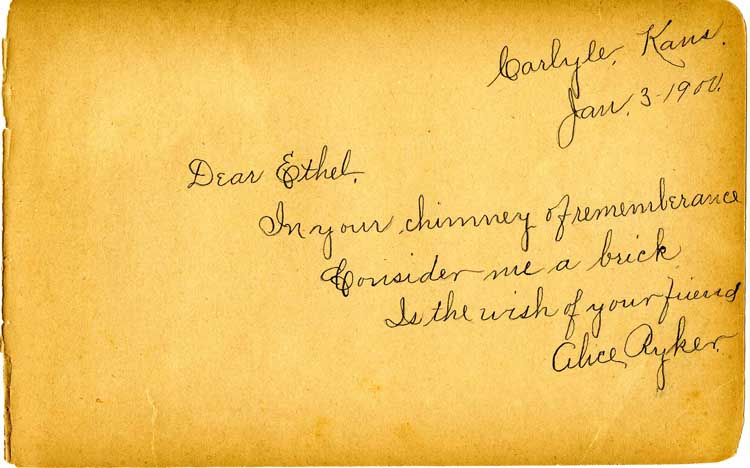 Carlyle, Kans.
Jan. 3-1900.
Dear Ethel.
In your chimney of rememberance
Consider me a brick
Is the wish of your friend
Alice Ryker.